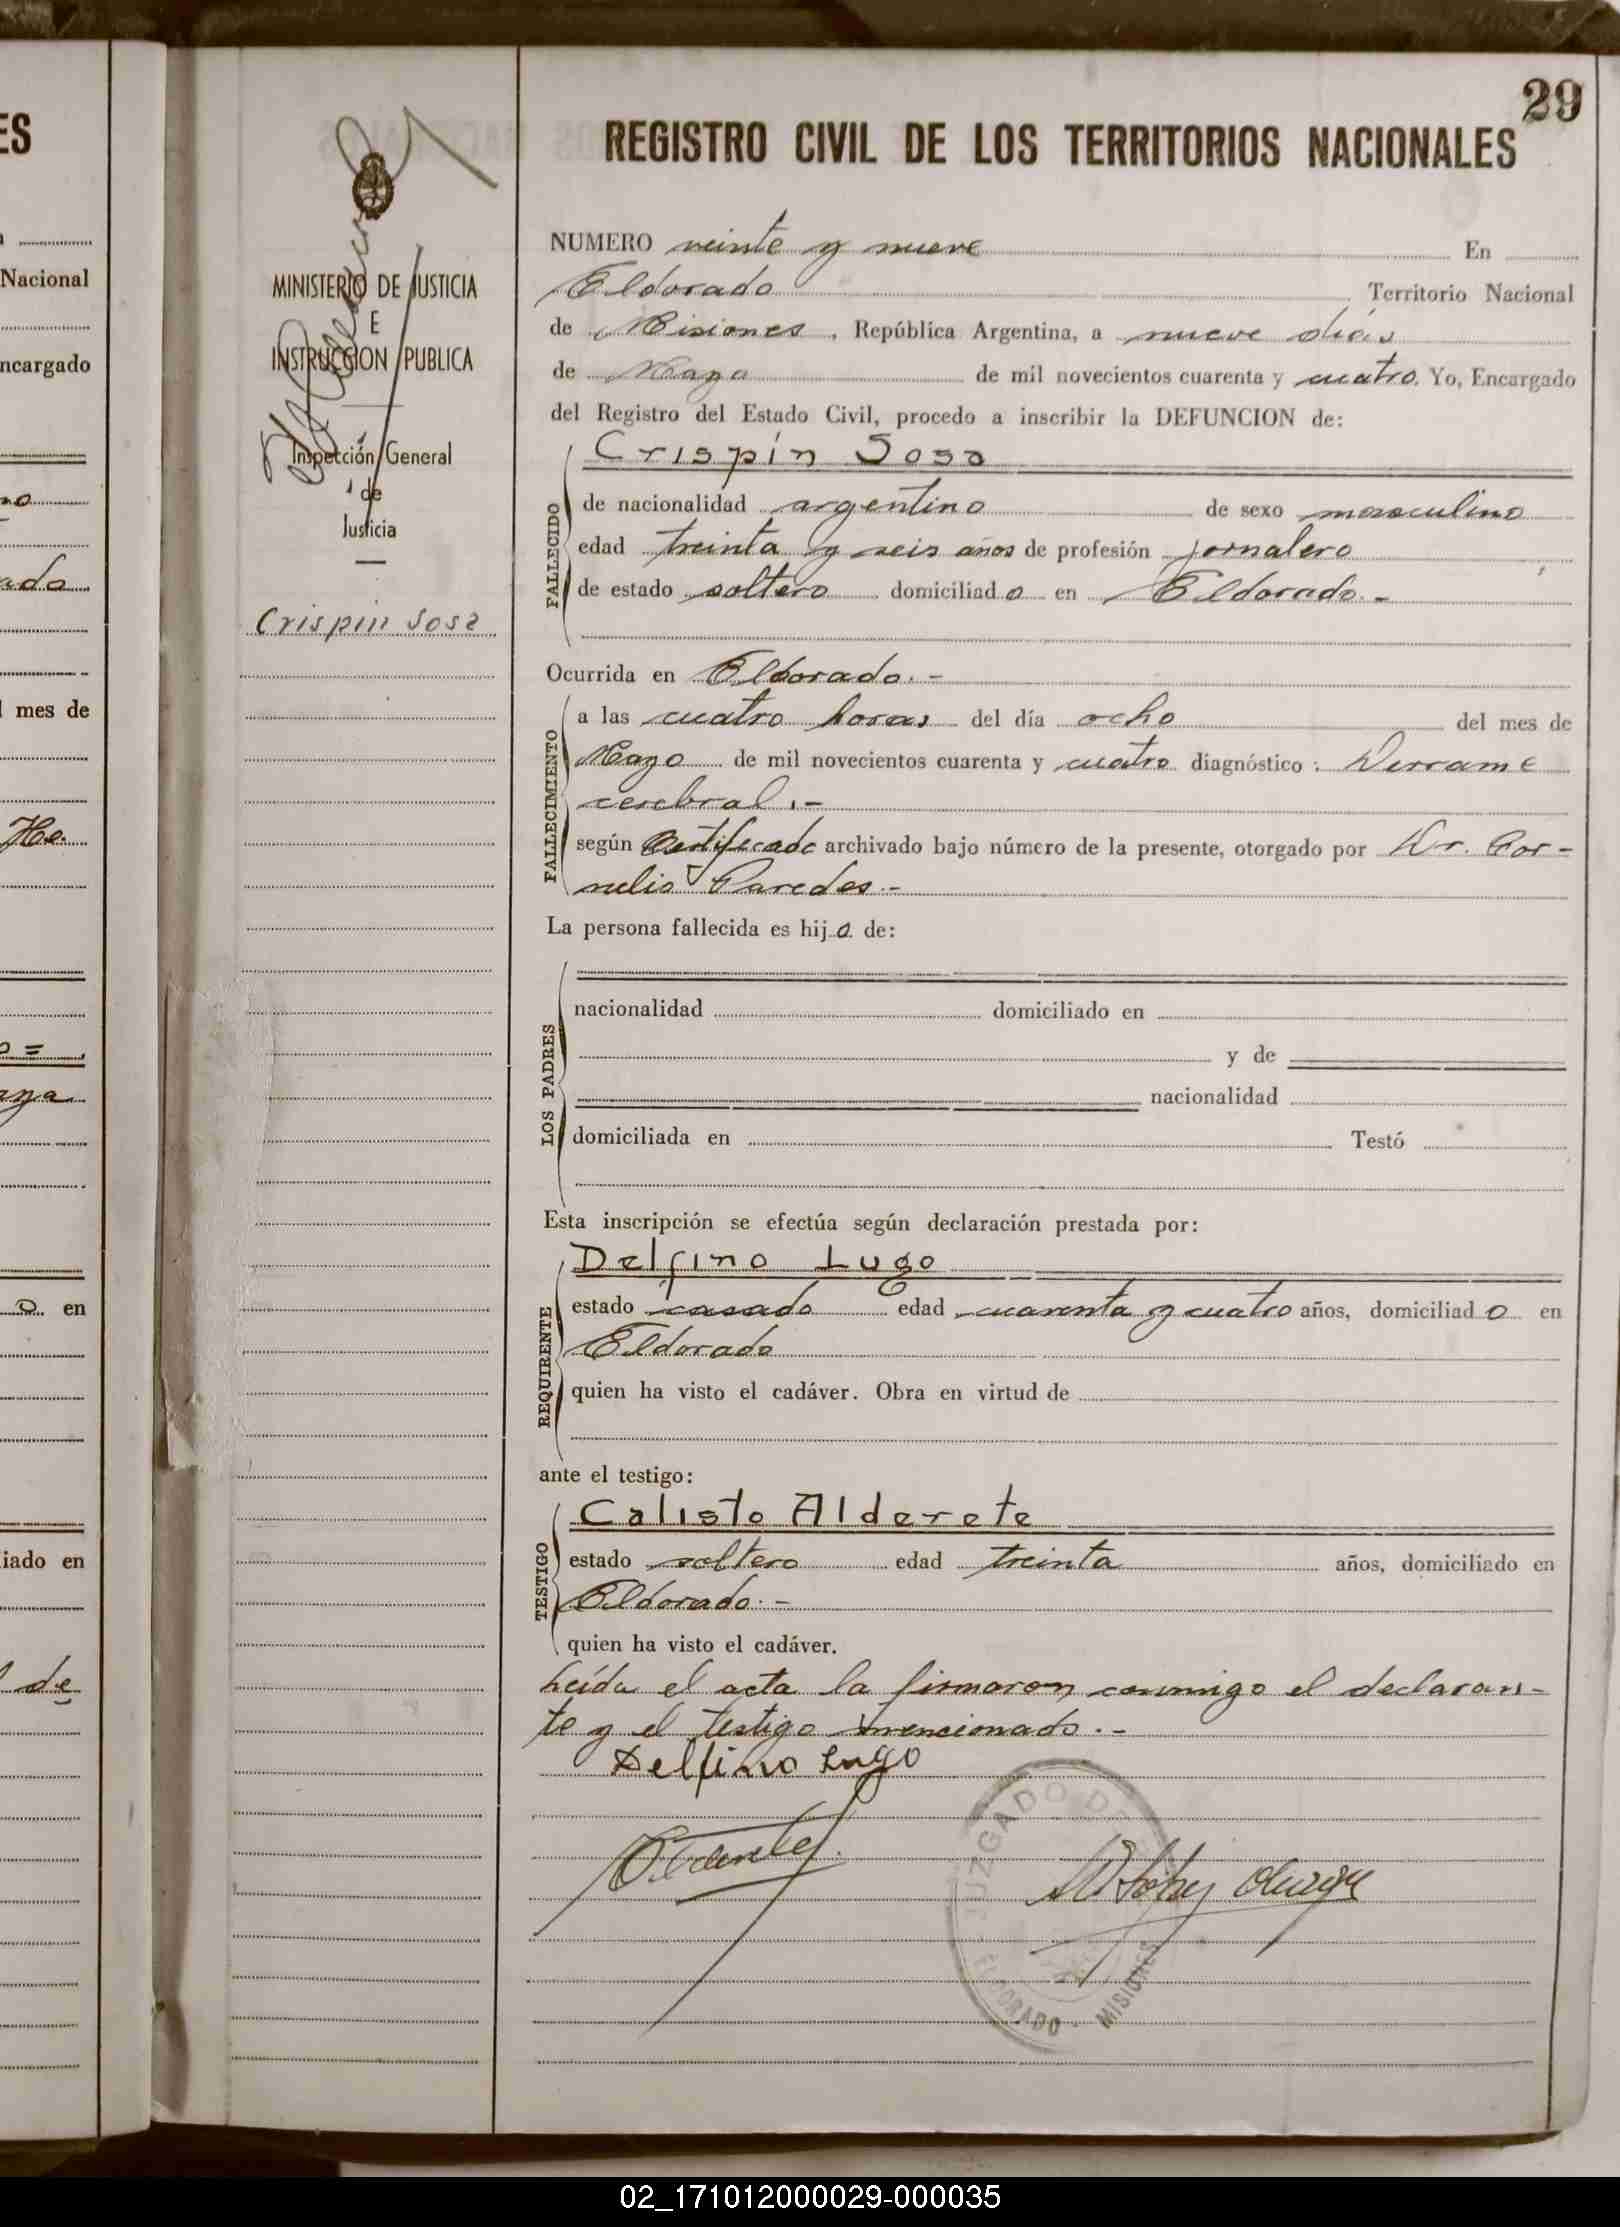 29
REGISTRO CIVIL DE LOS TERRITORIOS NACIONALES
MINISTERIO DE JUSTICIA
E
INSTRUCCION PUBLICA
Inspección General
de
Justicia
Crispin Sosa
NUMERO veinte y nueve En
Eldorado Territorio Nacional
de Misiones, República Argentina, a nueve días
de Mayo de mil novecientos cuarenta y cuatro. Yo, Encargado
del Registro del Estado Civil, procedo a inscribir la DEFUNCION de:
Crispín Sosa
FALLECIDO
de nacionalidad argentino de sexo masculino
edad treinta y seis años de profesión jornalero
de estado soltero domiciliado en Eldorado.-
Ocurrida en Eldorado.-
FALLECIMIENTO
a las cuatro horas del día ocho del mes de
Mayo de mil novecientos cuarenta y cuatro diagnóstico: Derrame
cerebral.-
según Certificado archivado bajo número de la presente, otorgado por Dr. Cor-
nelio Paredes.-
La persona fallecida es hijo de:
LOS PADRES
nacionalidad domiciliado en
y de
nacionalidad
domiciliada en Testó
Esta inscripción se efectúa según declaración prestada por:
Delfino Lugo
REQUIRENTE
estado casado edad cuarenta y cuatro años, domiciliado en
Eldorado
quien ha visto el cadáver. Obra en virtud de
ante el testigo:
Calisto Alderete
TESTIGO
estado soltero edad treinta años, domiciliado en
Eldorado.-
quien ha visto el cadáver.
Leída el acta la firmaron conmigo el declaran-
te y el testigo mencionado.-
Delfino Lugo
JUZGADO DE
ELDORADO - MISIONES
ES
Nacional
encargado
mes de
en
iado en
de
02_171012000029-000035